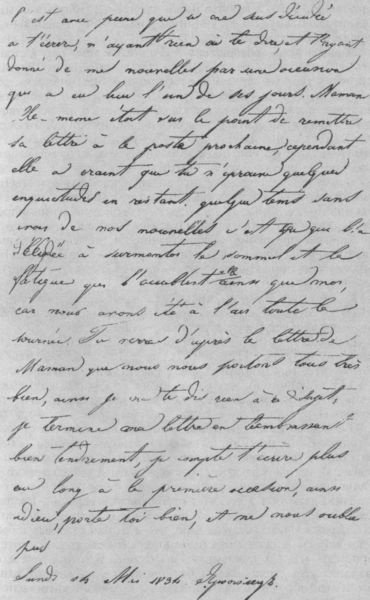 C'est avec peine que je me suis décidée
à t'écrire, n'ayant rien à te dire et t'ayant
donné de mes nouvelles par une occasion
qui a eu lieu l'un de ses jours. Maman
elle-même était sur le point de remettre
sa lettre à la poste prochaine, cependant
elle a craint que tu n'éprouve quelques
inquietudes en restant quelque tems sans
avoir de nos nouvelles c'est ce qui l'a
décidée à surmonter le sommeil et la
fatigue qui l'accablent ainsi que moi,
car nous avons été à l'air toute la
journée. Tu verras d'après la lettre de
Maman que nous nous portons tous très
bien, ainsi je ne te dis rien à ce sujet,
je termine ma lettre en t'embrassant
bien tendrement, je compte t'écrire plus
au long à la première occasion, ainsi
adieu, porte toi bien, et ne nous oublie
pas
Lundi 14 Mai 1834